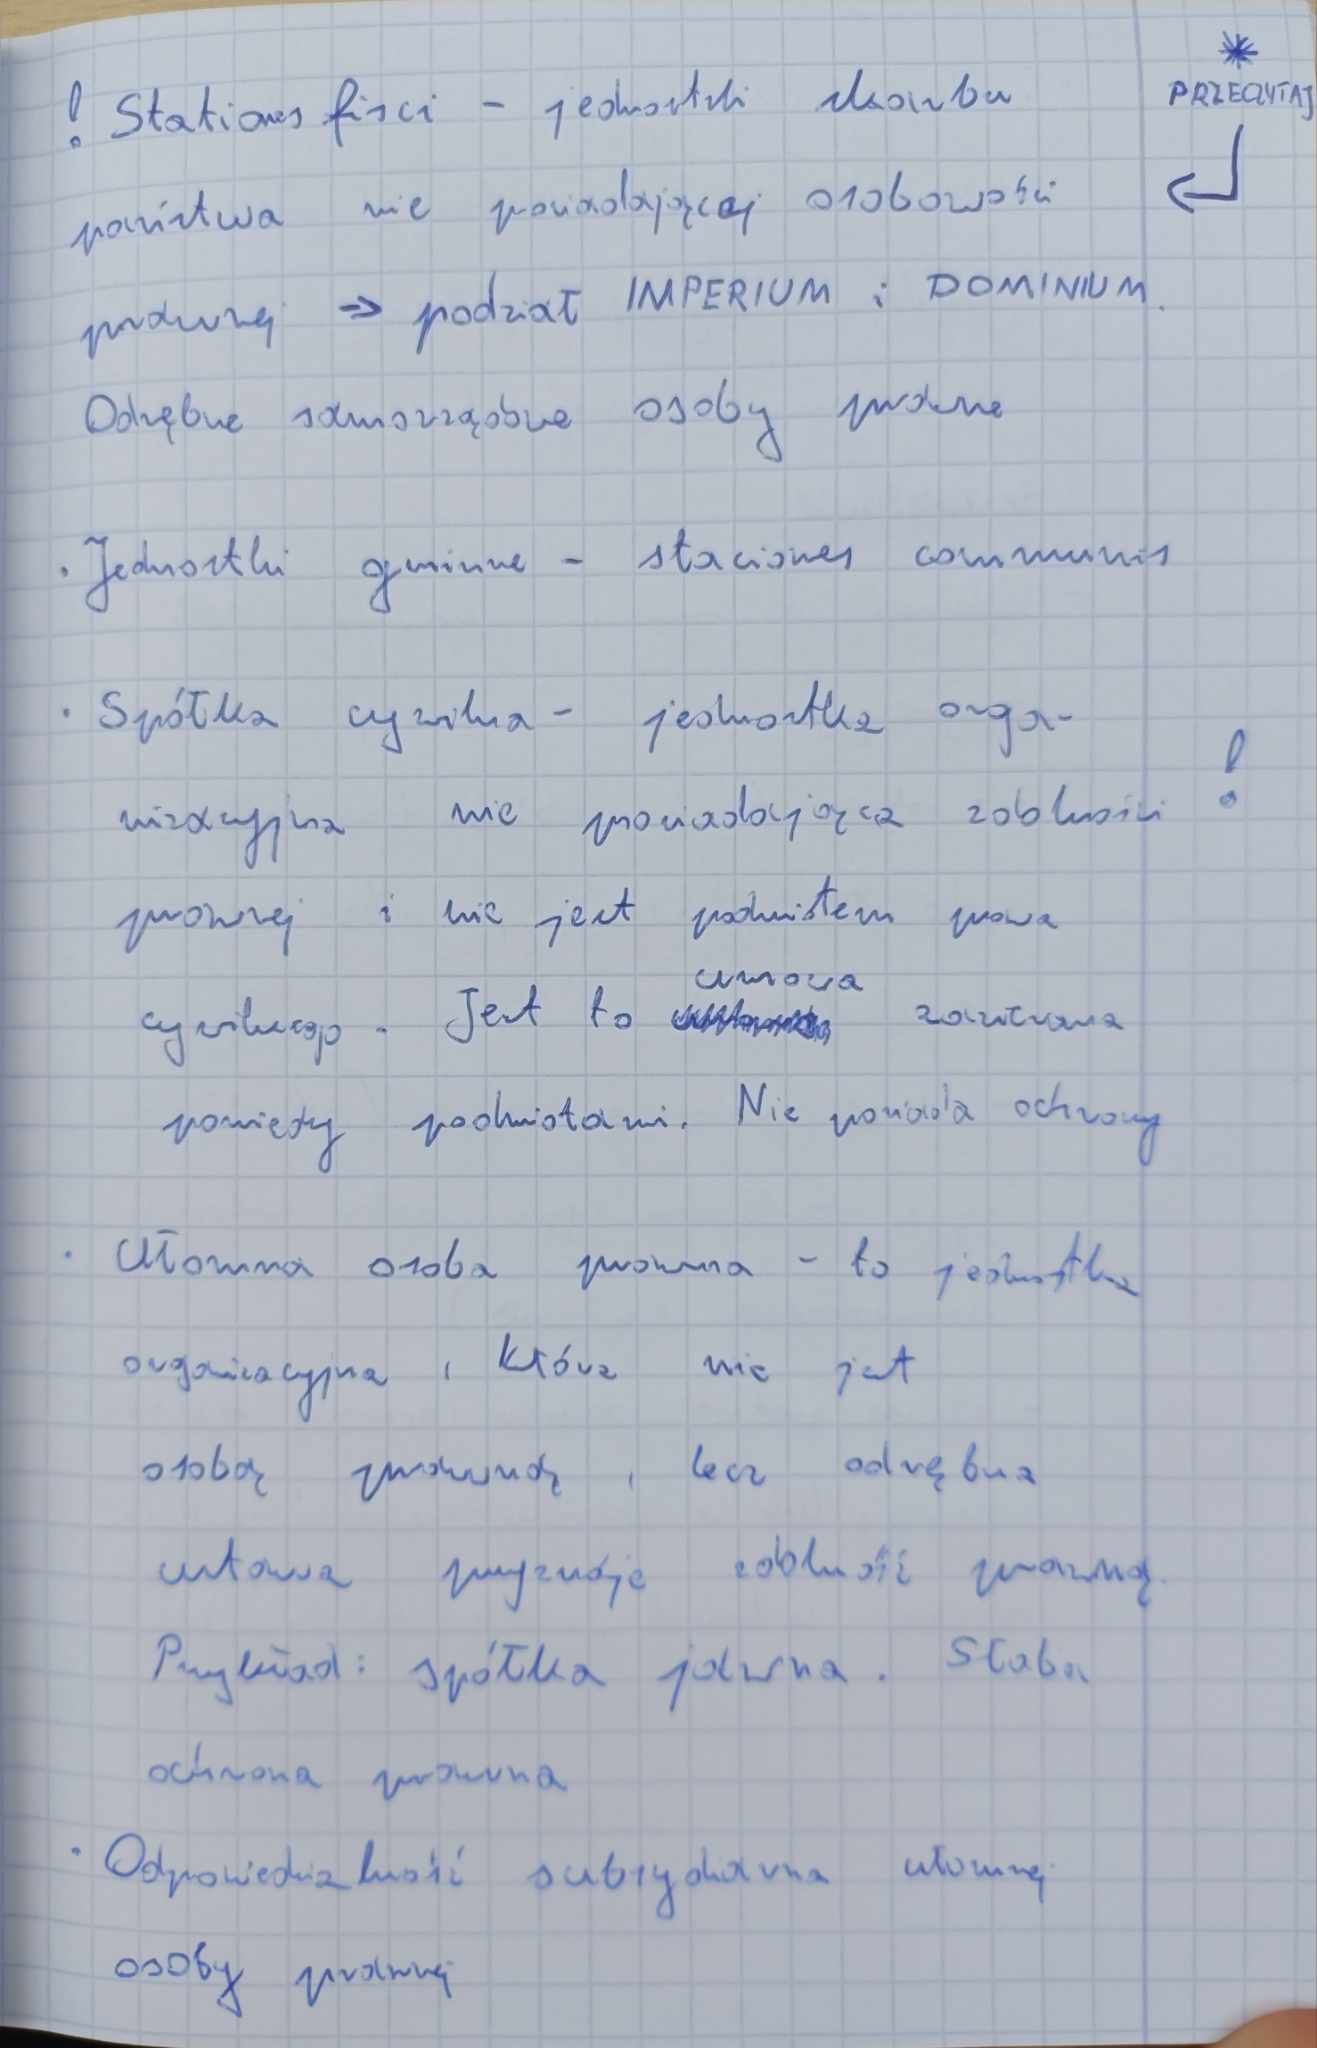 *
PRZECZYTAJ
! Stationes fisci - jednostki skarbu
państwa nie posiadającej osobowości
prawnej → podział IMPERIUM i DOMINIUM.
Odrębne samorządowe osoby prawne
· Jednostki gminne - staciones communis
· Spółka cywilna - jednostka orga-
nizacyjna nie posiadająca zdolności !
prawnej i nie jest podmiotem prawa
cywilnego. Jest to umowa zawierana
pomiędzy podmiotami. Nie posiada ochrony
· Ułomna osoba prawna - to jednostka
organizacyjna, która nie jest
osobą prawną, lecz odrębna
ustawa przyznaje zdolność prawną.
Przykład: spółka jawna. Słaba
ochrona prawna
· Odpowiedzialność subsydiarna ułomnej
osoby prawnej